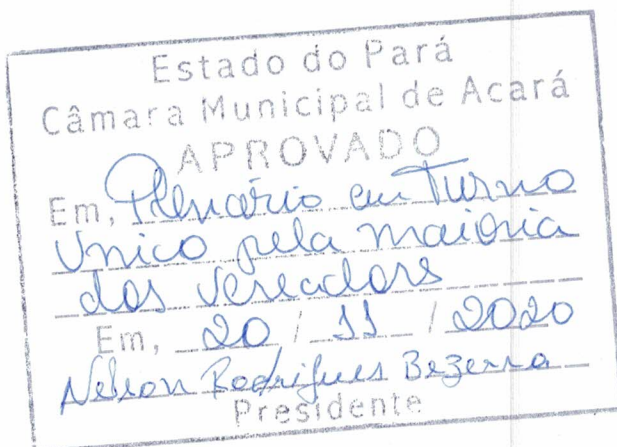 Estado do Pará
Câmara Municipal de Acará
APROVADO
Em, Plenário em Turno
Único pela maioria
dos Vereadores
Em, 20 / 11 / 2020
Nelson Rodrigues Bezerra
Presidente